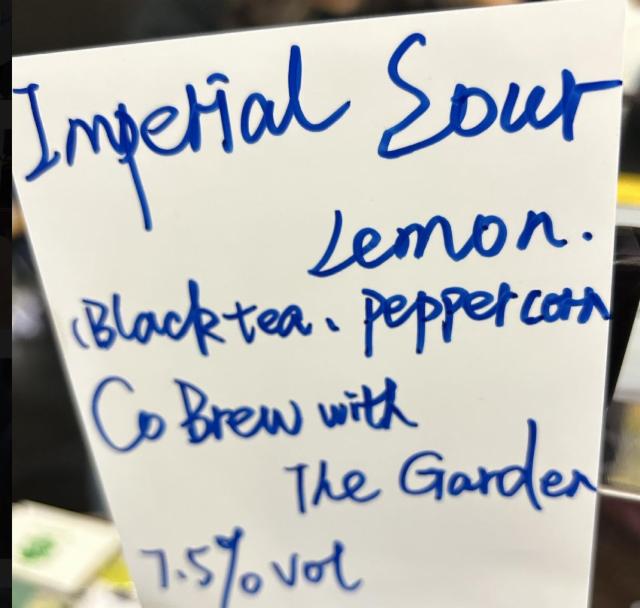 Imperial Sour
Lemon.
(Black tea、peppercorn
Co Brew with
The Garden
7.5% vol